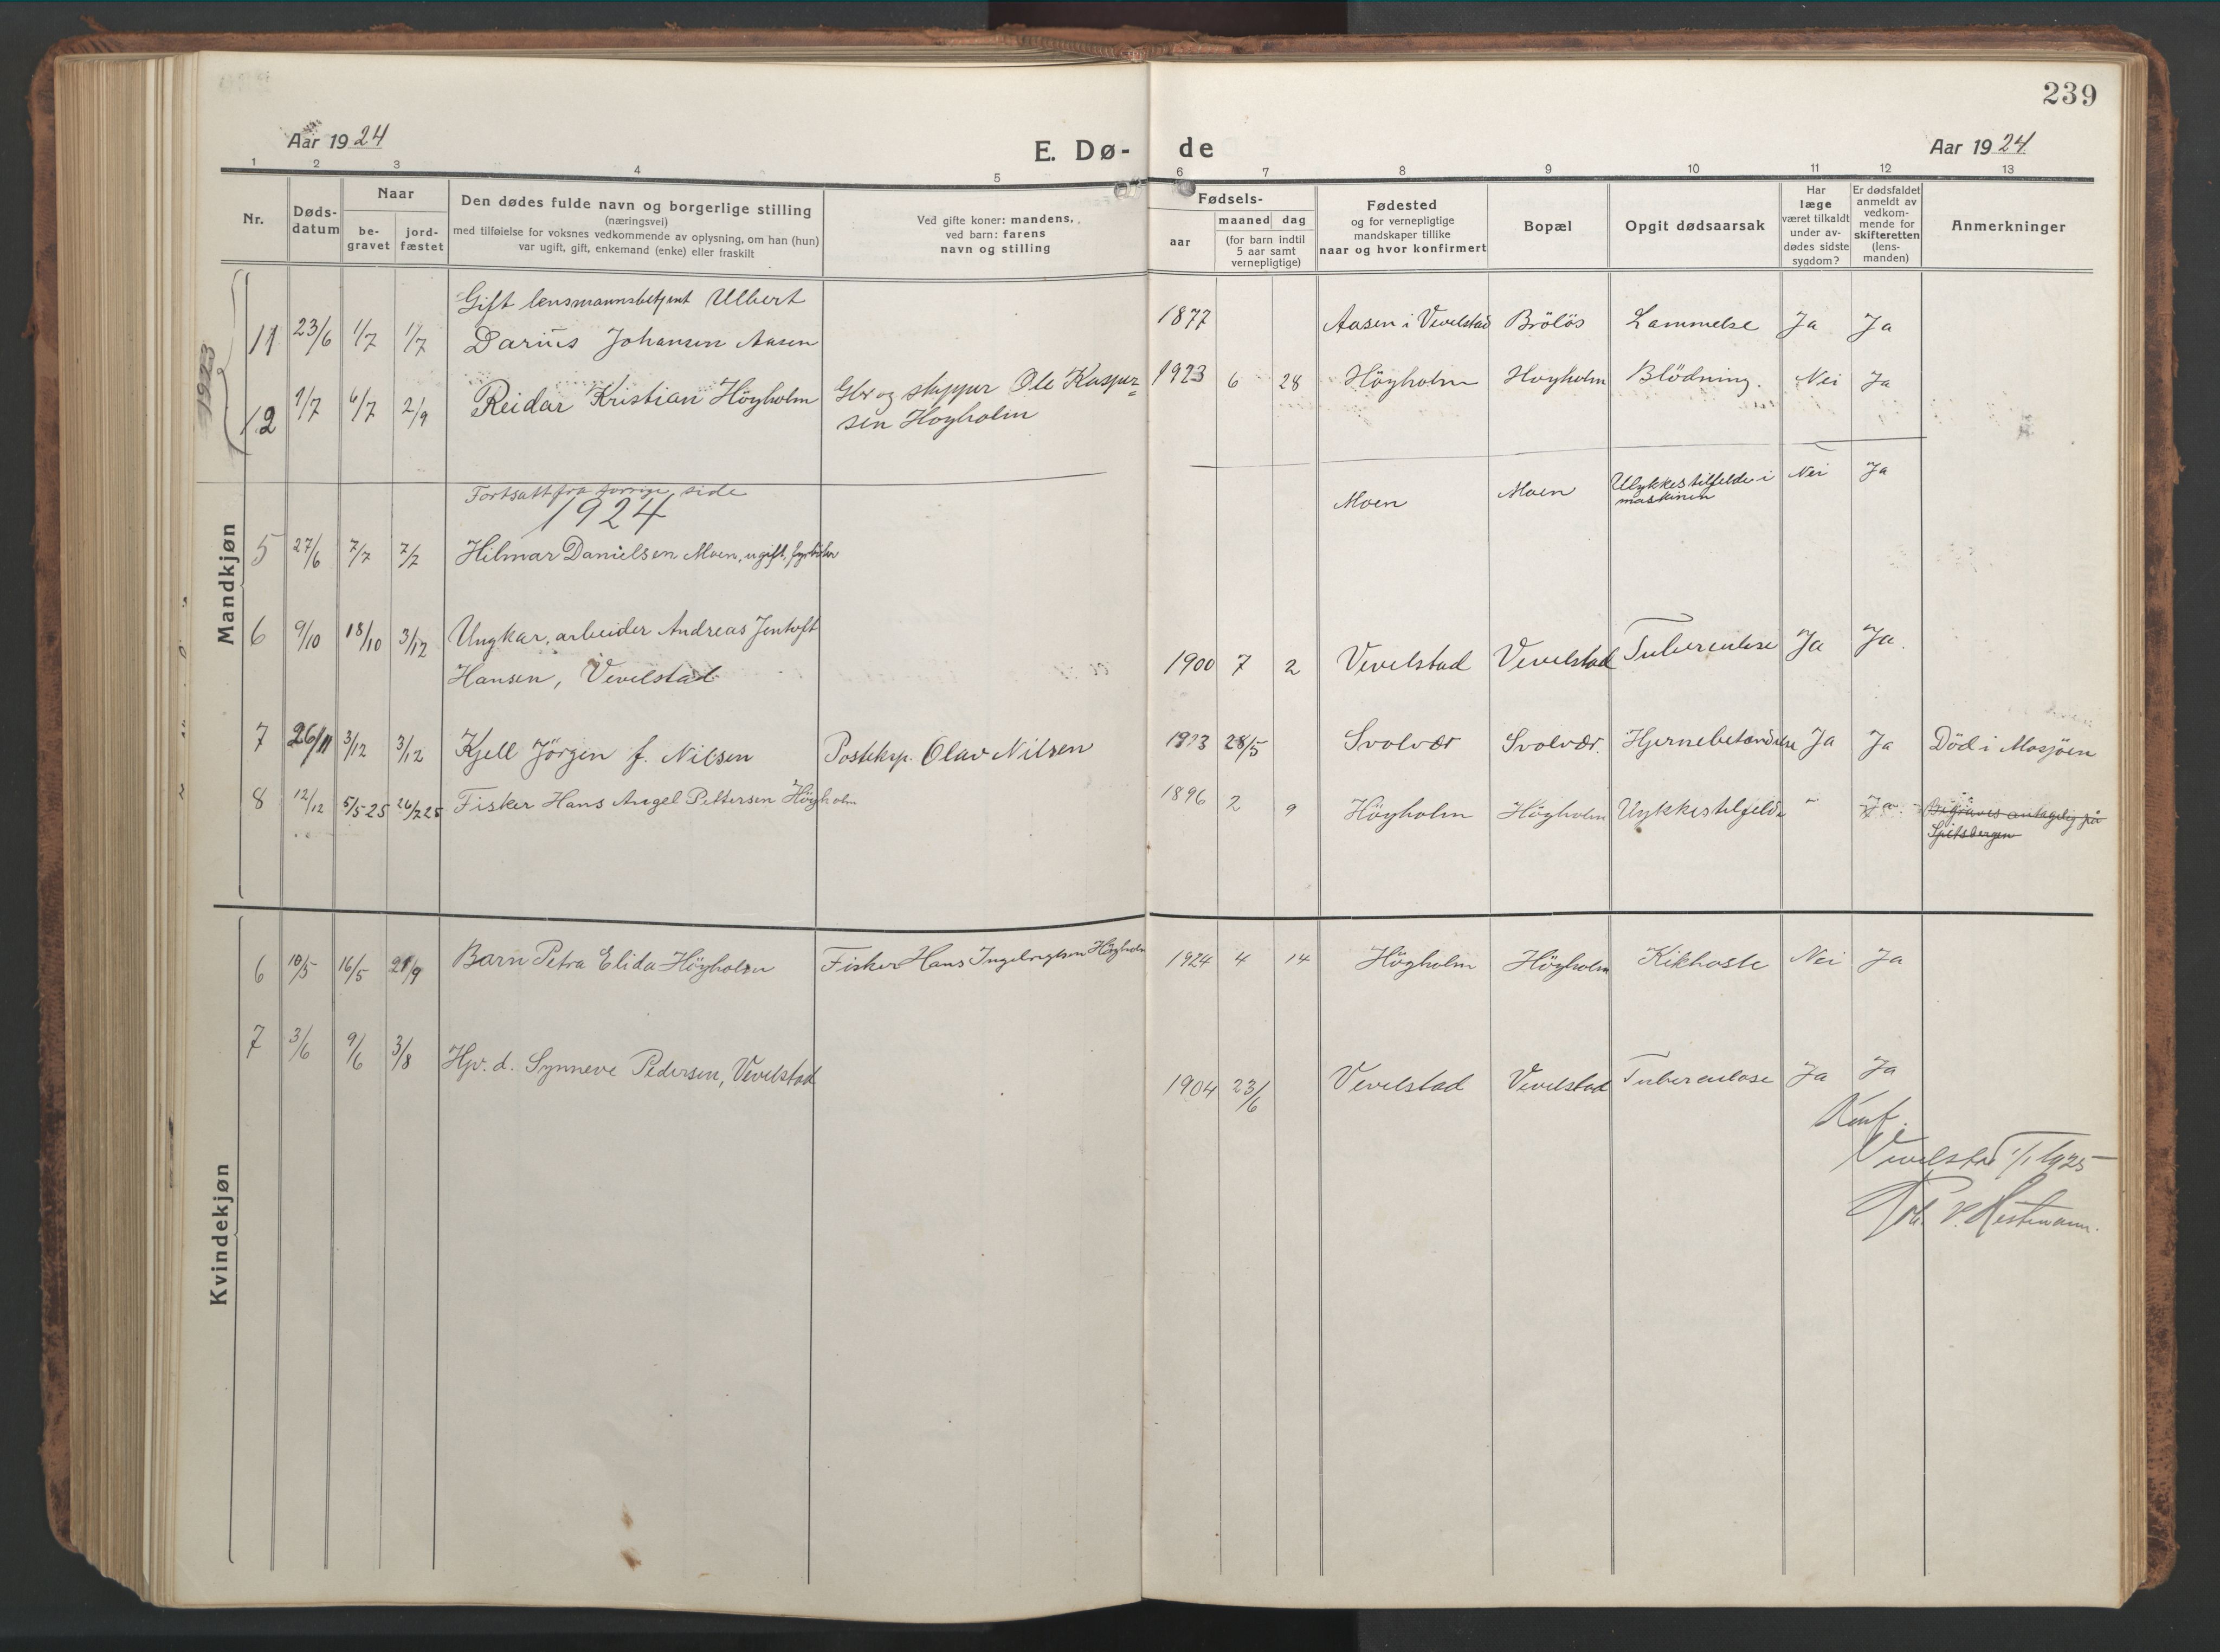 239
Aar 1924
E. Dø-
de
Aar 1924
1 2 3 4 5 6 7 8 9 10 11 12 13
Nr.
Døds-
datum
Naar
be-
gravet
jord-
fæstet
Den dødes fulde navn og borgerlige stilling
(næringsvei)
med tilføielse for voksnes vedkommende av oplysning, om han (hun)
var ugift, gift, enkemand (enke) eller fraskilt
Ved gifte koner: mandens,
ved barn: farens
navn og stilling
Fødsels-
aar
maaned dag
(for barn indtil
5 aar samt
vernepligtige)
Fødested
og for vernepligtige
mandskaper tillike
naar og hvor konfirmert
Bopæl
Opgit dødsaarsak
Har
læge
været tilkaldt
under av-
dødes sidste
sygdom?
Er dødsfaldet
anmeldt av
vedkom-
mende for
skifteretten
(lens-
manden)
Anmerkninger
1923
Mandkjøn
Gift lensmannsbetjent Ulbert
11 23/6 1/7 1/7 Darius Johansen Aasen 1877 Aasen i Vevelstad Brölös Lammelse Ja Ja
12 1/7 6/7 2/9 Reidar Kristian Höyholm Gbr og skipper Ole Kasper= 1923 6 28 Höyholm Hoyholm Blödning. Nei Ja
sen Hoyholm
Fortsatt fra forrige side
1924
5 27/6 7/7 7/7 Hilmar Danielsen Moen, ugift, fyrböter Moen Moen Ulykkestilfelde i Nei Ja
maskinen
6 9/10 18/10 3/12 Ungkar, arbeider Andreas Jentoft
Hansen, Vevelstad 1900 7 2 Vevelstad Vevelstad Tuberculose Ja Ja.
7 26/11 3/12 3/12 Kjell Jörgen f. Nilsen Posteksp. Olav Nilsen 1923 28/5 Svolvær Svolvær. Hjernebetændelse Ja Ja Död i Mosjöen
8 12/12 5/5 25 26/7 25 Fisker Hans Angel Pettersen Höyholm 1896 2 9 Höyholm Höyholm Ulykkestilfelde - Ja Begraves antagelig på
Spitsbergen
Kvindekjøn
6 10/5 16/5 21/9 Barn Petra Elida Höyholm Fisker Hans Ingebrigtsen Höyholm 1924 4 14 Höyholm Höyholm Kikhoste Nei Ja
7 3/6 9/6 3/8 Hjv. d. Synneve Pedersen, Vevelstad 1904 23/6 Vevelstad Vevelstad Tuberculose Ja Ja
Konf.
Vevelstad 1/1 1925